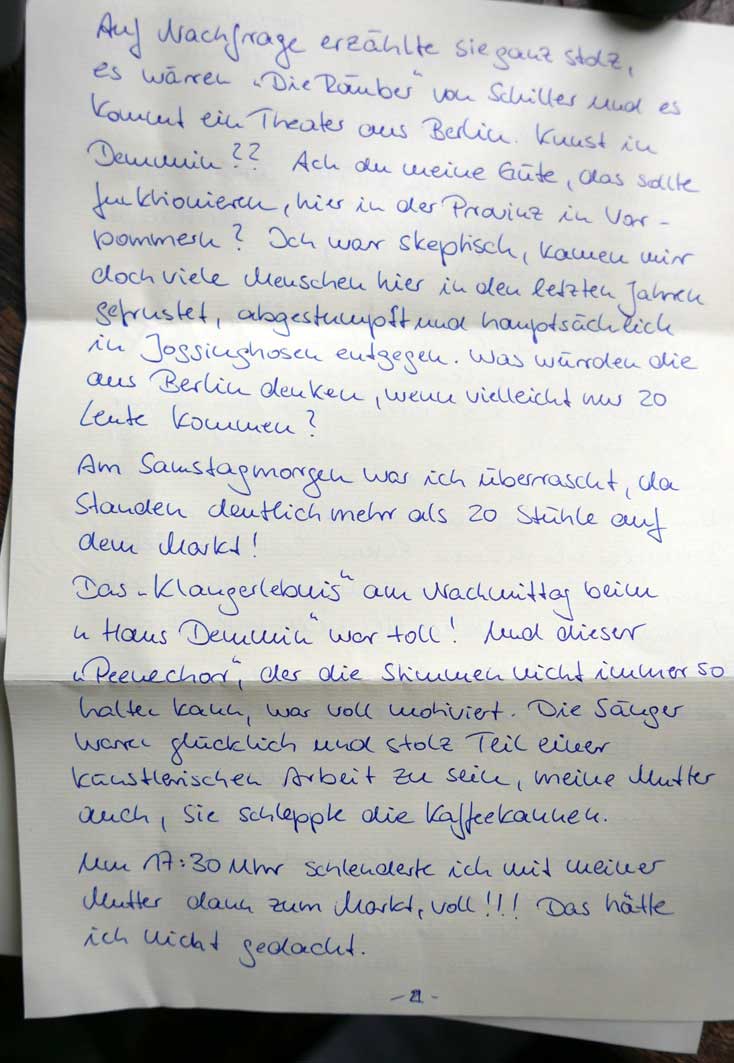 Auf Nachfrage erzählte sie ganz stolz,
es wären „Die Räuber“ von Schiller und es
kommt ein Theater aus Berlin. Kunst in
Demmin?? Ach du meine Güte, das sollte
funktionieren, hier in der Provinz in Vor-
pommern? Ich war skeptisch, kamen mir
doch viele Menschen hier in den letzten Jahren
gefrustet, abgestumpft und hauptsächlich
in Jogginghosen entgegen. Was würden die
aus Berlin denken, wenn vielleicht nur 20
Leute kommen?
Am Samstagmorgen war ich überrascht, da
standen deutlich mehr als 20 Stühle auf
dem Markt!
Das „Klangerlebnis“ am Nachmittag beim
„Haus Demmin“ war toll! Und dieser
„Peenechor“, der die Stimmen nicht immer so
halten kann, war voll motiviert. Die Sänger
waren glücklich und stolz Teil einer
künstlerischen Arbeit zu sein, meine Mutter
auch, sie schleppte die Kaffeekannen.
Um 17:30 Uhr schlenderte ich mit meiner
Mutter dann zum Markt, voll!!! Das hätte
ich nicht gedacht.